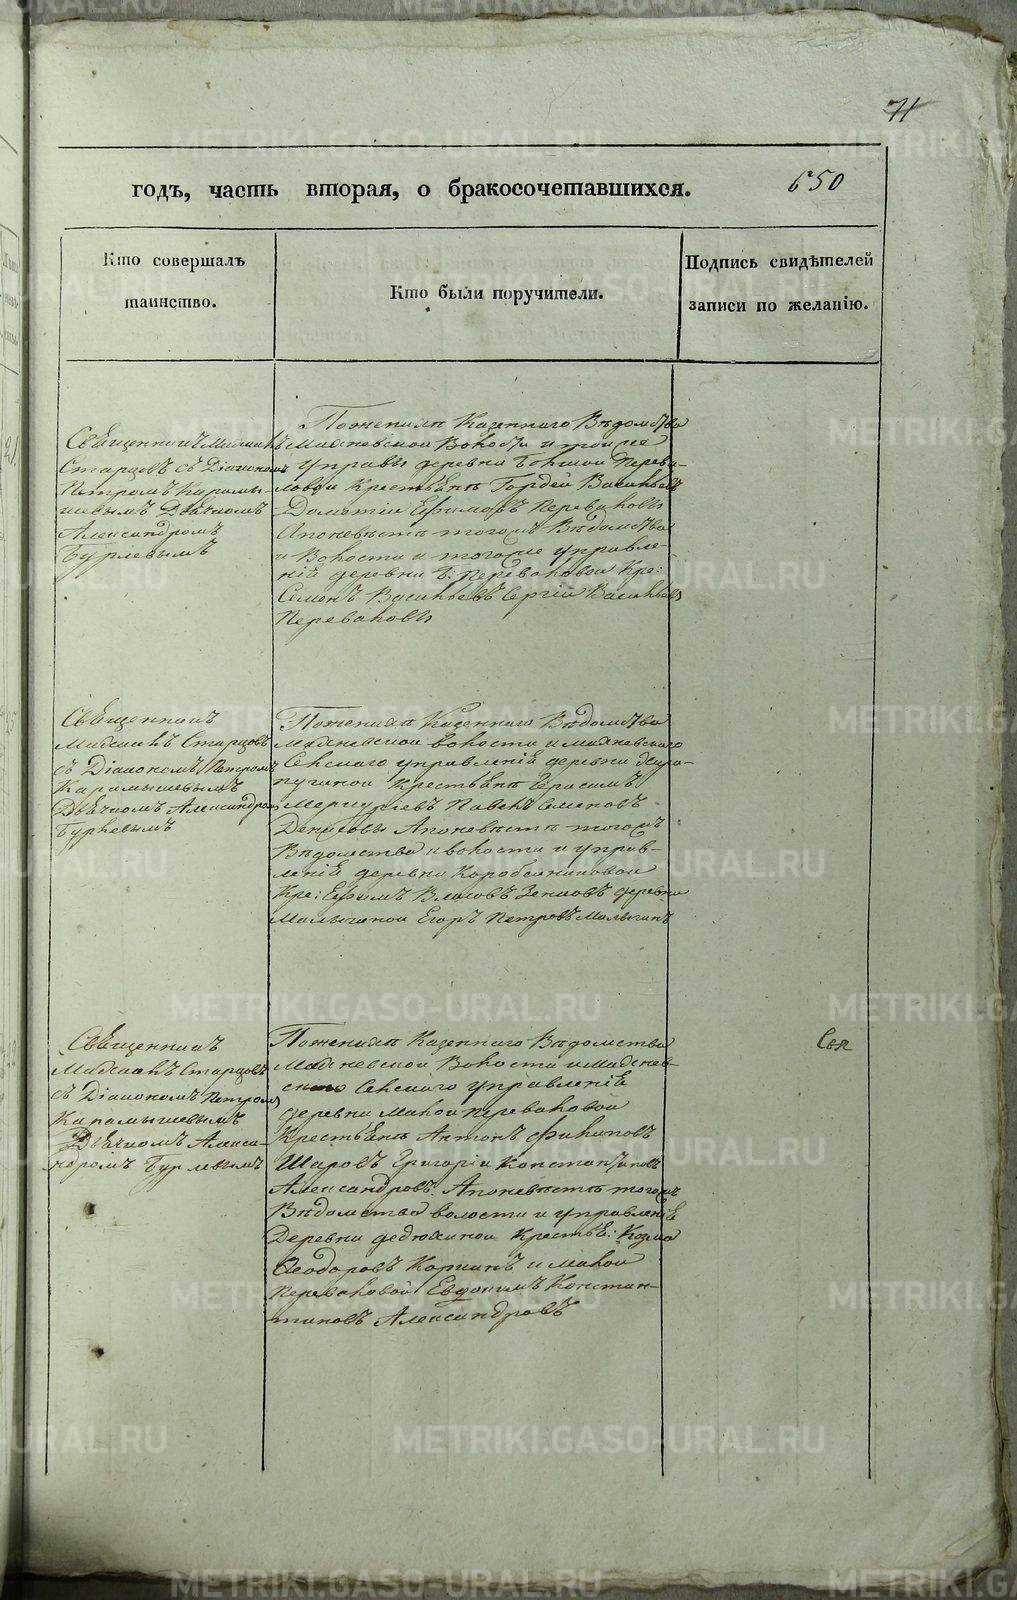 71
годъ, часть вторая, о бракосочетавшихся.
650
Кто совершалъ
таинство.
Кто были поручители.
Подпись свидѣтелей
записи по желанію.
Священникъ
Старцовъ съ Діакономъ
Петромъ Карамы-
шевымъ Дьячкомъ
Александромъ
Бурлевымъ
По женихѣ Казеннаго Вѣдомства
Маяковской Волости и той же
управы деревни Большой Перева-
ловой Крестьяне Гордей Васильевъ
Дометій Ефимовъ Переваловы
А по невѣстѣ тогожъ Вѣдомства
и Волости и тогоже управле-
нія деревни Б: Переваловой Кре:
Семенъ Васильевъ Сергій Васильевъ
Переваловы
Священникъ
Старцовъ
съ Діакономъ Петромъ
Карамышевымъ
Дьячкомъ Александромъ
Бурлевымъ
По женихѣ Казеннаго Вѣдомства
волости и
Сельскаго управленія деревни
Крестьяне Герасимъ
Меркуріевъ Павелъ Семеновъ
Денисовы А по невѣстѣ тогожъ
Вѣдомства и волости и управ-
ленія деревни Коробейниковой
Кре: Ефимъ Власовъ деревни
Малыгиной Егоръ Петровъ Малыгинъ
Священникъ
Старцовъ
съ Діакономъ Петромъ
Карамышевымъ
Дьячкомъ Алекса-
ндромъ Бурлевымъ
По женихѣ Казеннаго Вѣдомства
Волости и
Сельскаго управленія
деревни Малой Переваловой
Крестьяне Антонъ Филиповъ
Шаровъ Григорій Константиновъ
Александровъ А по невѣстѣ тогожъ
Вѣдомства волости и управленія
Деревни Дедюхиной Крестья: Козма
Ѳеодоровъ и Малой
Переваловой Евдокимъ Констан-
тиновъ Александровъ
Свя
METRIKI.GASO-URAL.RU